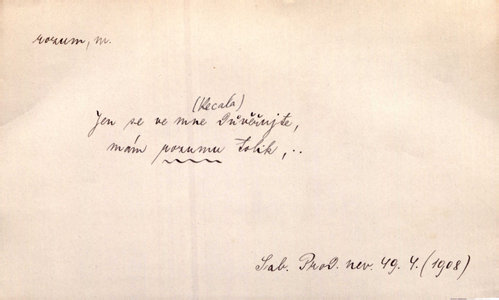 rozum, m.
(Kecala)
Jen se ve mne důvěřujte,
mám rozumu tolik,..
Sab. Prod. nev. 49. 4. (1908)